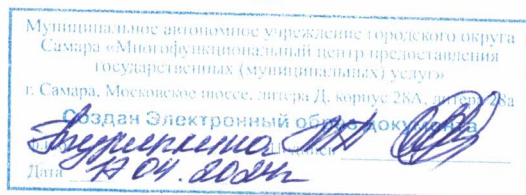 Муниципальное автономное учреждение городского округа
Самара «Многофункциональный центр предоставления
государственных (муниципальных) услуг»
г. Самара, Московское шоссе, литера Д, корпус 28А, литера 28а
Создан Электронный образ документа
Дата 17 04. 2024г